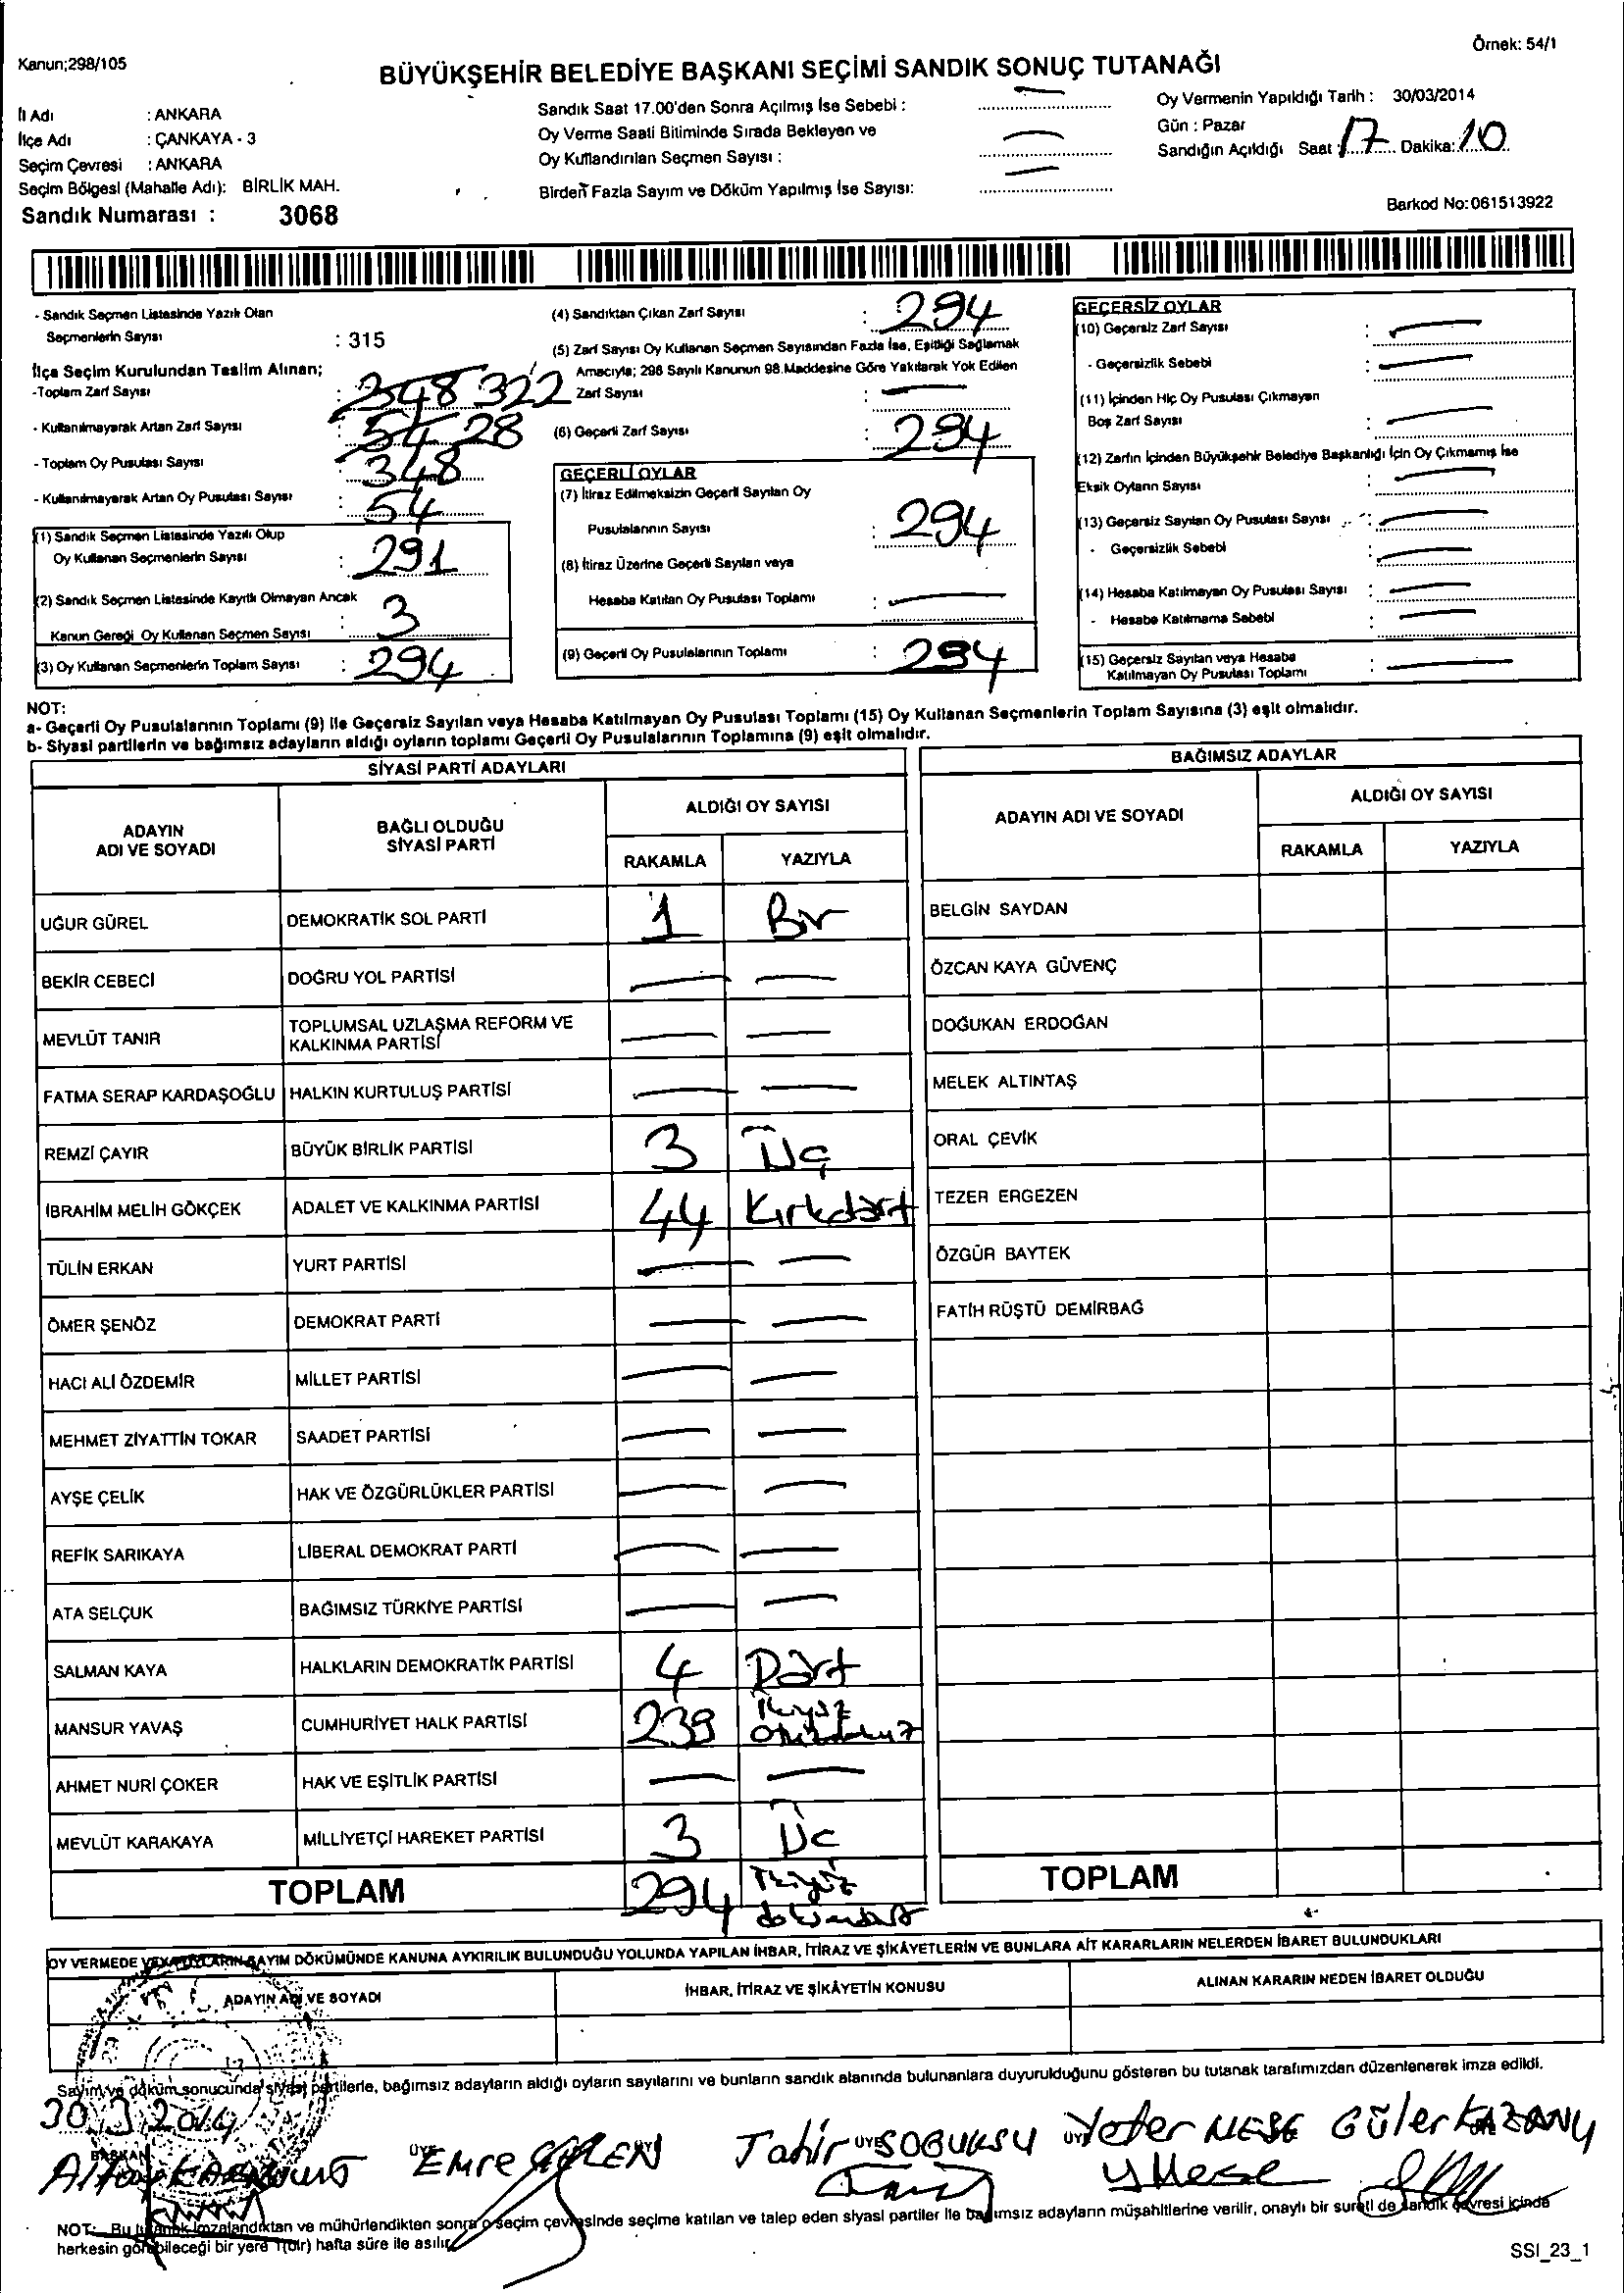 Örnek: 54/1
Kanun;298/105
BÜYÜKŞEHİR BELEDİYE BAŞKANI SEÇİMİ SANDIK SONUÇ TUTANAĞI
İl Adı : ANKARA
İlçe Adı : ÇANKAYA - 3
Seçim Çevresi : ANKARA
Seçim Bölgesi (Mahalle Adı): BİRLİK MAH.
Sandık Numarası : 3068
Sandık Saat 17.00'den Sonra Açılmış İse Sebebi : —
Oy Verme Saati Bitiminde Sırada Bekleyen ve
Oy Kullandırılan Seçmen Sayısı : —
Birden Fazla Sayım ve Döküm Yapılmış İse Sayısı: —
Oy Vermenin Yapıldığı Tarih : 30/03/2014
Gün : Pazar
Sandığın Açıldığı Saat : 17 Dakika: 10
Barkod No:061513922
- Sandık Seçmen Listesinde Yazılı Olan
Seçmenlerin Sayısı : 315
İlçe Seçim Kurulundan Teslim Alınan;
-Toplam Zarf Sayısı : 348 322
- Kullanılmayarak Artan Zarf Sayısı : 54 28
- Toplam Oy Pusulası Sayısı : 348
- Kullanılmayarak Artan Oy Pusulası Sayısı : 54
(1) Sandık Seçmen Listesinde Yazılı Olup
Oy Kullanan Seçmenlerin Sayısı : 291
(2) Sandık Seçmen Listesinde Kayıtlı Olmayan Ancak
Kanun Gereği Oy Kullanan Seçmen Sayısı : 3
(3) Oy Kullanan Seçmenlerin Toplam Sayısı : 294
(4) Sandıktan Çıkan Zarf Sayısı : 294
(5) Zarf Sayısı Oy Kullanan Seçmen Sayısından Fazla İse, Eşitliği Sağlamak
Amacıyla; 298 Sayılı Kanunun 98.Maddesine Göre Yakılarak Yok Edilen
Zarf Sayısı : —
(6) Geçerli Zarf Sayısı : 294
GEÇERLİ OYLAR
(7) İtiraz Edilmeksizin Geçerli Sayılan Oy
Pusulalarının Sayısı : 294
(8) İtiraz Üzerine Geçerli Sayılan veya
Hesaba Katılan Oy Pusulası Toplamı : —
(9) Geçerli Oy Pusulalarının Toplamı : 294
GEÇERSİZ OYLAR
(10) Geçersiz Zarf Sayısı : —
- Geçersizlik Sebebi : —
(11) İçinden Hiç Oy Pusulası Çıkmayan
Boş Zarf Sayısı : —
(12) Zarfın İçinden Büyükşehir Belediye Başkanlığı İçin Oy Çıkmamış İse
Eksik Oyların Sayısı : —
(13) Geçersiz Sayılan Oy Pusulası Sayısı : —
- Geçersizlik Sebebi : —
(14) Hesaba Katılmayan Oy Pusulası Sayısı : —
- Hesaba Katılmama Sebebi : —
(15) Geçersiz Sayılan veya Hesaba
Katılmayan Oy Pusulası Toplamı : —
NOT:
a- Geçerli Oy Pusulalarının Toplamı (9) ile Geçersiz Sayılan veya Hesaba Katılmayan Oy Pusulası Toplamı (15) Oy Kullanan Seçmenlerin Toplam Sayısına (3) eşit olmalıdır.
b- Siyasi partilerin ve bağımsız adayların aldığı oyların toplamı Geçerli Oy Pusulalarının Toplamına (9) eşit olmalıdır.
SİYASİ PARTİ ADAYLARI
ADAYIN ADI VE SOYADI
BAĞLI OLDUĞU SİYASİ PARTİ
ALDIĞI OY SAYISI
RAKAMLA YAZIYLA
UĞUR GÜREL DEMOKRATİK SOL PARTİ 1 Bir
BEKİR CEBECİ DOĞRU YOL PARTİSİ — —
MEVLÜT TANIR TOPLUMSAL UZLAŞMA REFORM VE KALKINMA PARTİSİ — —
FATMA SERAP KARDAŞOĞLU HALKIN KURTULUŞ PARTİSİ — —
REMZİ ÇAYIR BÜYÜK BİRLİK PARTİSİ 3 Üç
İBRAHİM MELİH GÖKÇEK ADALET VE KALKINMA PARTİSİ 44 Kırkdört
TÜLİN ERKAN YURT PARTİSİ — —
ÖMER ŞENÖZ DEMOKRAT PARTİ — —
HACI ALİ ÖZDEMİR MİLLET PARTİSİ — —
MEHMET ZİYATTİN TOKAR SAADET PARTİSİ — —
AYŞE ÇELİK HAK VE ÖZGÜRLÜKLER PARTİSİ — —
REFİK SARIKAYA LİBERAL DEMOKRAT PARTİ — —
ATA SELÇUK BAĞIMSIZ TÜRKİYE PARTİSİ — —
SALMAN KAYA HALKLARIN DEMOKRATİK PARTİSİ 4 Dört
MANSUR YAVAŞ CUMHURİYET HALK PARTİSİ 239 İkiyüz otuzdokuz
AHMET NURİ ÇOKER HAK VE EŞİTLİK PARTİSİ — —
MEVLÜT KARAKAYA MİLLİYETÇİ HAREKET PARTİSİ 3 Üç
TOPLAM 294 İkiyüz doksandört
BAĞIMSIZ ADAYLAR
ADAYIN ADI VE SOYADI
ALDIĞI OY SAYISI
RAKAMLA YAZIYLA
BELGİN SAYDAN
ÖZCAN KAYA GÜVENÇ
DOĞUKAN ERDOĞAN
MELEK ALTINTAŞ
ORAL ÇEVİK
TEZER ERGEZEN
ÖZGÜR BAYTEK
FATİH RÜŞTÜ DEMİRBAĞ
TOPLAM
OY VERMEDE VEYA OYLARIN SAYIM DÖKÜMÜNDE KANUNA AYKIRILIK BULUNDUĞU YOLUNDA YAPILAN İHBAR, İTİRAZ VE ŞİKÂYETLERİN VE BUNLARA AİT KARARLARIN NELERDEN İBARET BULUNDUKLARI
ADAYIN ADI VE SOYADI
İHBAR, İTİRAZ VE ŞİKÂYETİN KONUSU
ALINAN KARARIN NEDEN İBARET OLDUĞU
Sayım ve döküm sonucunda siyasi partilerle, bağımsız adayların aldığı oyların sayılarını ve bunların sandık alanında bulunanlara duyurulduğunu gösteren bu tutanak tarafımızdan düzenlenerek imza edildi.
30.3.2014
BAŞKAN ÜYE ÜYE ÜYE ÜYE
Emre Tahir SOĞUKSU Yeter NEŞE Güler KAZANÇ
NOT: Bu tutanak imzalandıktan ve mühürlendikten sonra o seçim çevresinde seçime katılan ve talep eden siyasi partiler ile bağımsız adayların müşahitlerine verilir, onaylı bir sureti de sandık çevresi içinde
herkesin görebileceği bir yere 1(bir) hafta süre ile asılır.
SSI_23_1